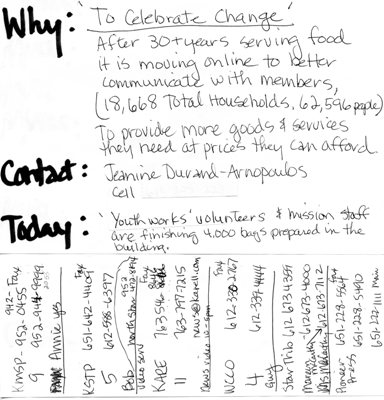 Why: 'To Celebrate Change'
After 30+ years serving food
it is moving online to better
communicate with members,
(18,668 Total Households, 62,596 people)
To provide more goods & services
they need at prices they can afford.
Contact: Jeanine Durand-Arnopoulos
cell
Today: 'Youth works' volunteers & mission staff
are finishing 4,000 bags prepared in the
building.
942- Fax
KMSP - 952-0455
9 952-944-9999
Annie yes
Fax
KSTP 651-642-4409
5 612-588-6397
Bob 952
north star 412-
video serv
KARE 763 546 Fax
11 763-797-7215
news@kare11.com
News video up-
Fax
WCCO 612-330-2767
4 612-339-4444
guy
Star Trib 612 673 4359
612-673-4000
612 673-7112
Pioneer 651-228-5564
Press 651-228-5490
651-222-1111 main